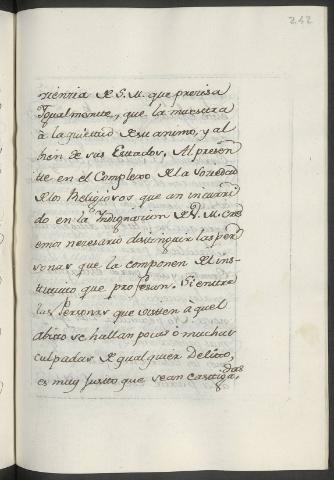 242
ciencia de S. M. que precisa
Igualmente, que la nuestra
à la quietud de su animo, y al
bien de sus Estados. Al presen
te en el Complexo de la Sociedad
de los Religiosos que an incurri
do en la Indignacion de V. M. Cre
emo necesario distinguir las per
sonas que la componen del ins-
tituto que profesan. Si entre
las Personas que visten àquel
abito se hallan pocas ò muchas
culpadas de qualquier delito,
es muy Justo que sean castigadas